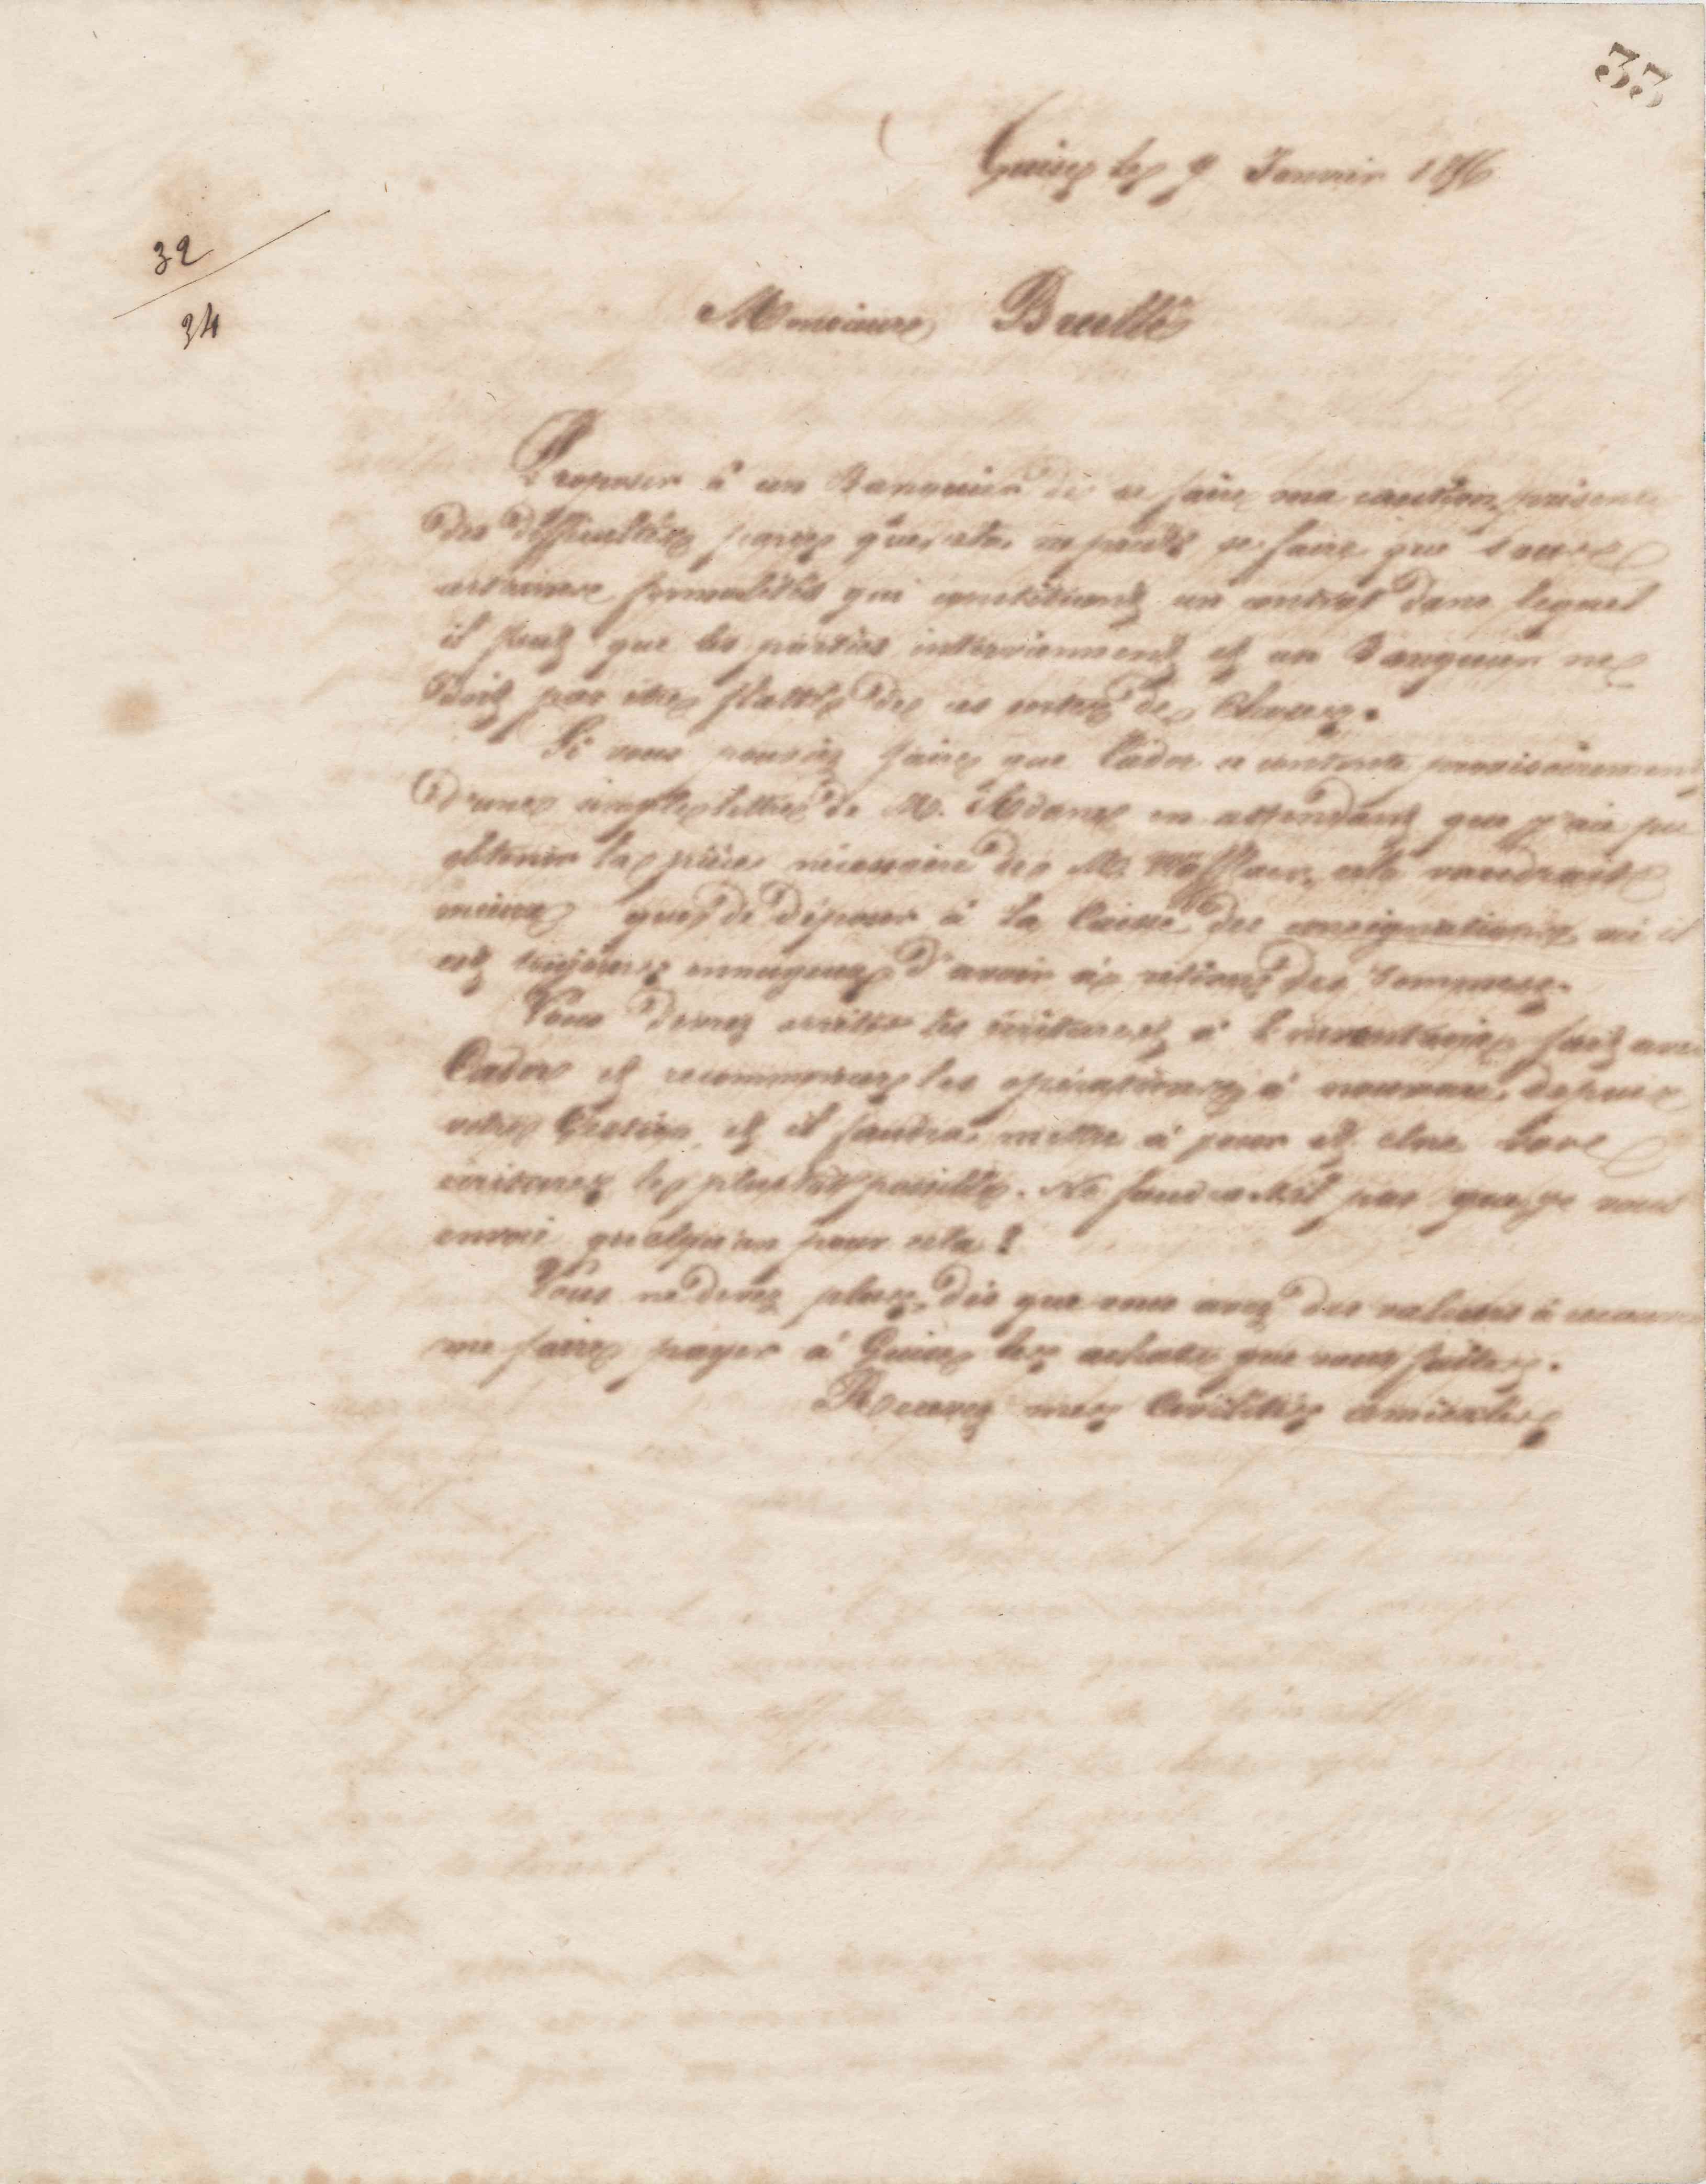 33
Guise le 9 Janvier 1856
32
34
Monsieur Brullé
Proposer à un Banquier de se faire ma caution présente
des difficultés parce que cela ne peut se faire que sous
certaines formalités qui constituent un contrat dans lequel
il faut que les parties interviennent et un Banquier ne
doit pas être flatté de ces sortes de choses.
Si vous pouviez faire que Cador se contente provisoirement
d'une simple lettre de M. en attendant que j'aie pu
obtenir la pièce nécessaire de M. cela vaudrait
mieux que de déposer à la Caisse des consignations, où il
est toujours ennuyeux d'avoir à retirer des sommes.
Vous devez arrêter les écritures à l'inventaire fait avec
Cador et recommencer les opérations à nouveau depuis
votre Gestion, et il faudra mettre à jour et clore
écritures le plus tôt possible. Ne faudra-t-il pas que je vous
envoie quelqu'un pour cela ?
Vous ne devez plus, dès que vous avez des valeurs à recouvrer
me faire payer à Guise les achats que vous faites.
Recevez mes Civilités amicales